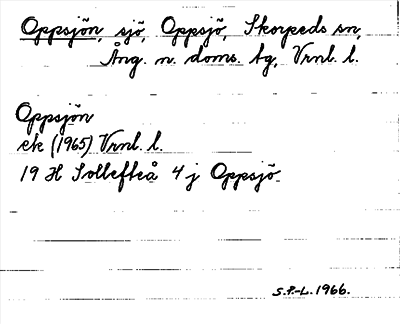 Oppsjön, sjö, Oppsjö, Skorpeds sn,
Ång. n. doms. tg, Vrnl. l.
Oppsjön
ek (1965) Vrnl. l.
19 H Sollefteå 4 j Oppsjö
S.P.-L. 1966.